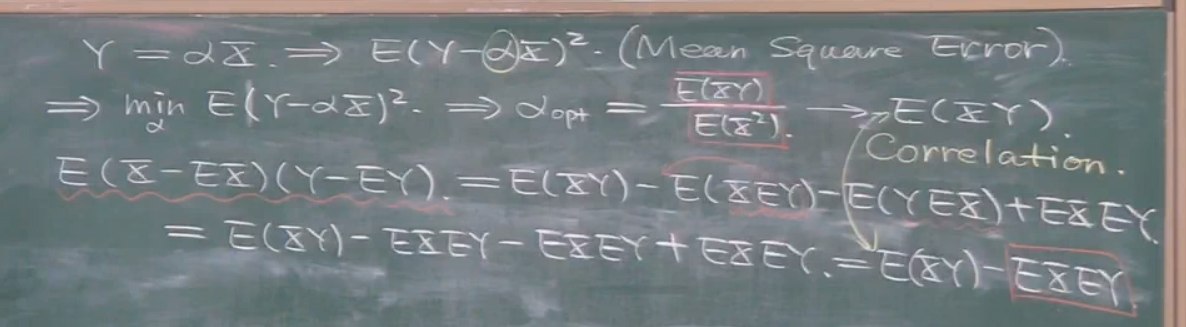 Y = αX. ⇒ E(Y-αX)². (Mean Square Error).
⇒ min_α E(Y-αX)². ⇒ α_opt = E(XY) / E(X²). → E(XY).
Correlation.
E(X-EX)(Y-EY). = E(XY) - E(XEY) - E(YEX) + EXEY.
= E(XY) - EXEY - EXEY + EXEY. = E(XY) - EXEY.